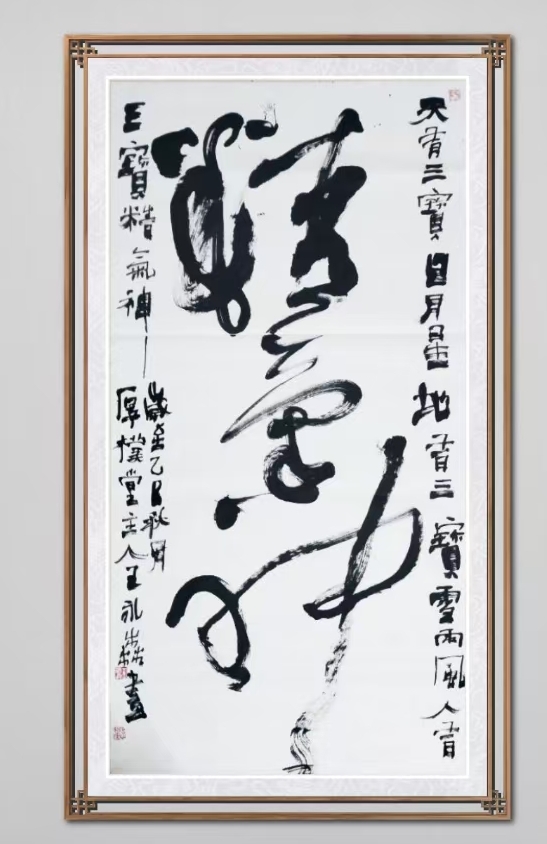 天有三寶日月星地有三寶雪雨風人有
精氣神
三寶精氣神
歲在乙巳秋月
厚樸堂主人王永書